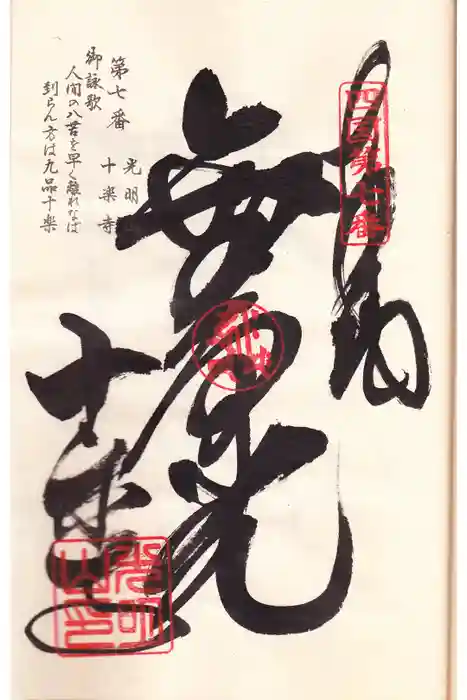 奉拝
四国第七番
無量光
十楽寺
光明山印
第七番
光明山
十楽寺
御詠歌
人間の八苦を早く離れなば
到らん方は九品十楽